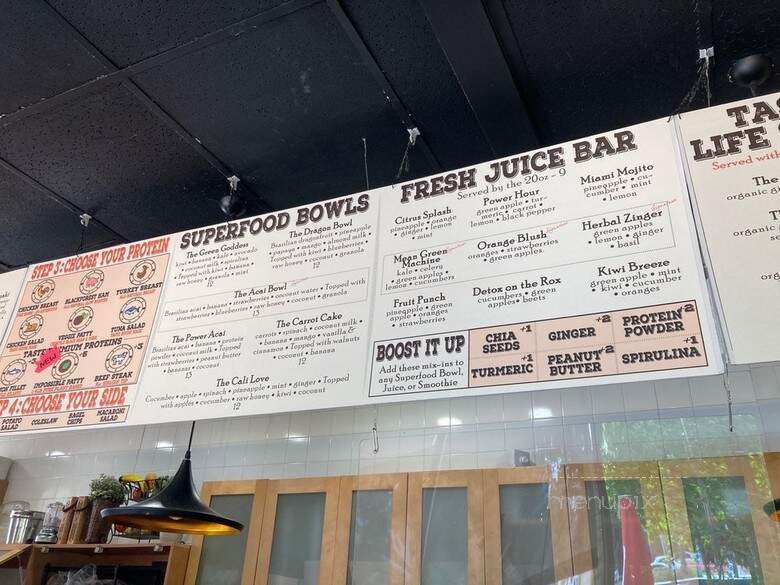 STEP 3: CHOOSE YOUR PROTEIN
CHICKEN BREAST
BLACKFOREST HAM
TURKEY BREAST
CHICKEN SALAD
VEGGIE PATTY
TUNA SALAD
PROTEINS
NEW
IMPOSSIBLE PATTY
BEEF STEAK
4: CHOOSE YOUR SIDE
POTATO SALAD
COLESLAW
BAGEL CHIPS
MACARONI SALAD
SUPERFOOD BOWLS
The Green Goddess
kiwi • banana • kale • avocado
• coconut milk • spirulina
Topped with kiwi • banana •
raw honey • granola • mint
12
The Dragon Bowl
Brazilian dragonfruit • pineapple
papaya • mango • almond milk •
Topped with kiwi • blueberries •
raw honey • coconut • granola
12
The Acai Bowl
Brazilian acai • banana • strawberries • coconut water • Topped with
strawberries • blueberries • raw honey • coconut • granola
13
The Power Acai
Brazilian acai • banana • protein
powder • coconut milk • Topped
with strawberries • peanut butter
• bananas • coconut
13
The Carrot Cake
carrots • spinach • coconut milk •
banana • mango • vanilla &
cinnamon • Topped with walnuts
• coconut • banana
12
The Cali Love
Cucumber • apple • spinach • pineapple • mint • ginger • Topped
with apples • cucumber • raw honey • kiwi • coconut
12
FRESH JUICE BAR
Served by the 20oz - 9
Citrus Splash
pineapple • orange
• ginger • lemon
• mint
Power Hour
green apple • tur-
meric • carrot •
lemon • black pepper
Miami Mojito
pineapple • cu-
cumber • mint
• lemon
Mean Green
Machine
kale • celery
• green apples •
lemon • cucumbers
Orange Blush
oranges • strawberries
• green apples
Herbal Zinger
green apples
• lemon • ginger
• basil
Fruit Punch
pineapple • green
apple • oranges
• strawberries
Detox on the Rox
cucumbers • green
apples • beets
Kiwi Breeze
green apple • mint
• kiwi • cucumber
• oranges
BOOST IT UP
Add these mix-ins to
any Superfood Bowl,
Juice, or Smoothie
CHIA SEEDS +1
GINGER +2
PROTEIN POWDER +2
TURMERIC +1
PEANUT BUTTER +2
SPIRULINA +1
TA
LIFE
Served with
The
organic
organic
menupix